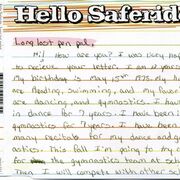 Hello Saferid
Long lost pen pal,
Hi! How are you? I was very happ
to recieve your letter. I am 12 years
My birthday is May 15th 1975. My ho
are Reading, swimming, and my favou
are dancing, and gymnastics. I have
in dance for 7 years. I have been i
gymnastics for 7 years. I have been
many recitals for my dance and
nastics. This fall I'm going to try o
for the gymnastics team at scho
Then I will compete with other s